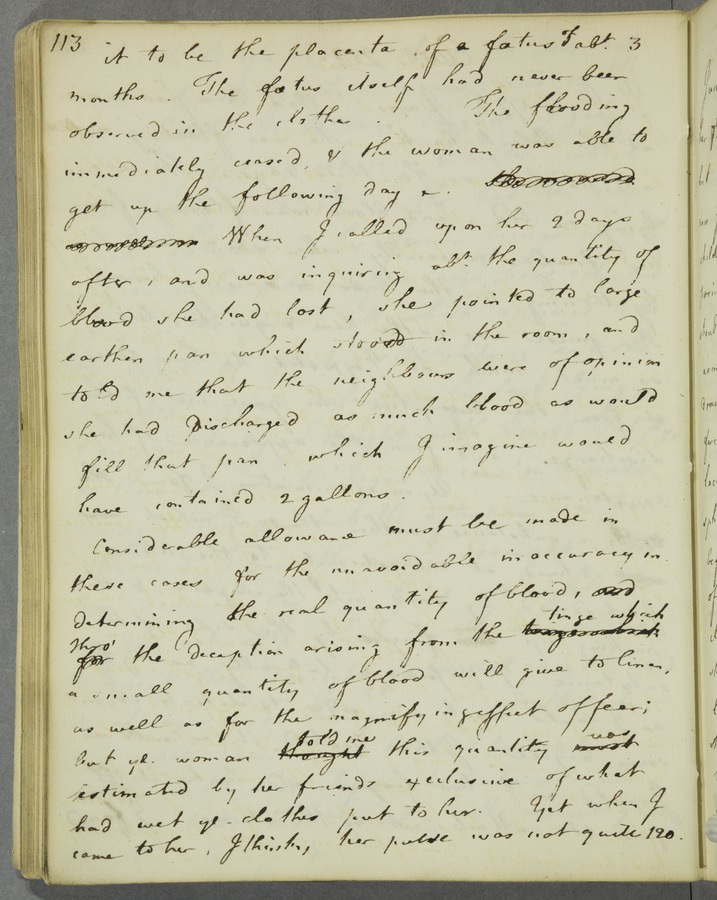 113
it to be the placenta of a fœtus of abt. 3
months. The fœtus itself had never been
observed in the clothes. The flooding
immediately ceased, & the woman was able to
get up the following day
When I called upon her 2 days
after, and was inquiring abt. the quantity of
blood she had lost, she pointed to large
earthen pan which stood in the room, and
told me that the neighbours were of opinion
she had discharged as much blood as would
fill that pan which I imagine would
have contained 2 gallons.
Considerable allowance must be made in
these cases for the unavoidable inaccuracy in
determining the real quantity of blood, and
tinge which
thro'
for the deception arising from the
a small quantity of blood will give to linen,
as well as for the magnifying effect of fear;
told me was
but ye. woman thought this quantity must
estimated by her friends exclusive of what
had wet ye. clothes put to her. Yet when I
came to her, I think, her pulse was not quite 120.